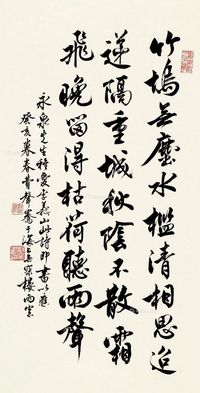 竹塢無塵水檻清相思迢
遞隔重城秋陰不散霜
飛晚留得枯荷聽雨聲
先生雅愛李義山此詩即書以應
癸亥暮春于海上樓雨窗